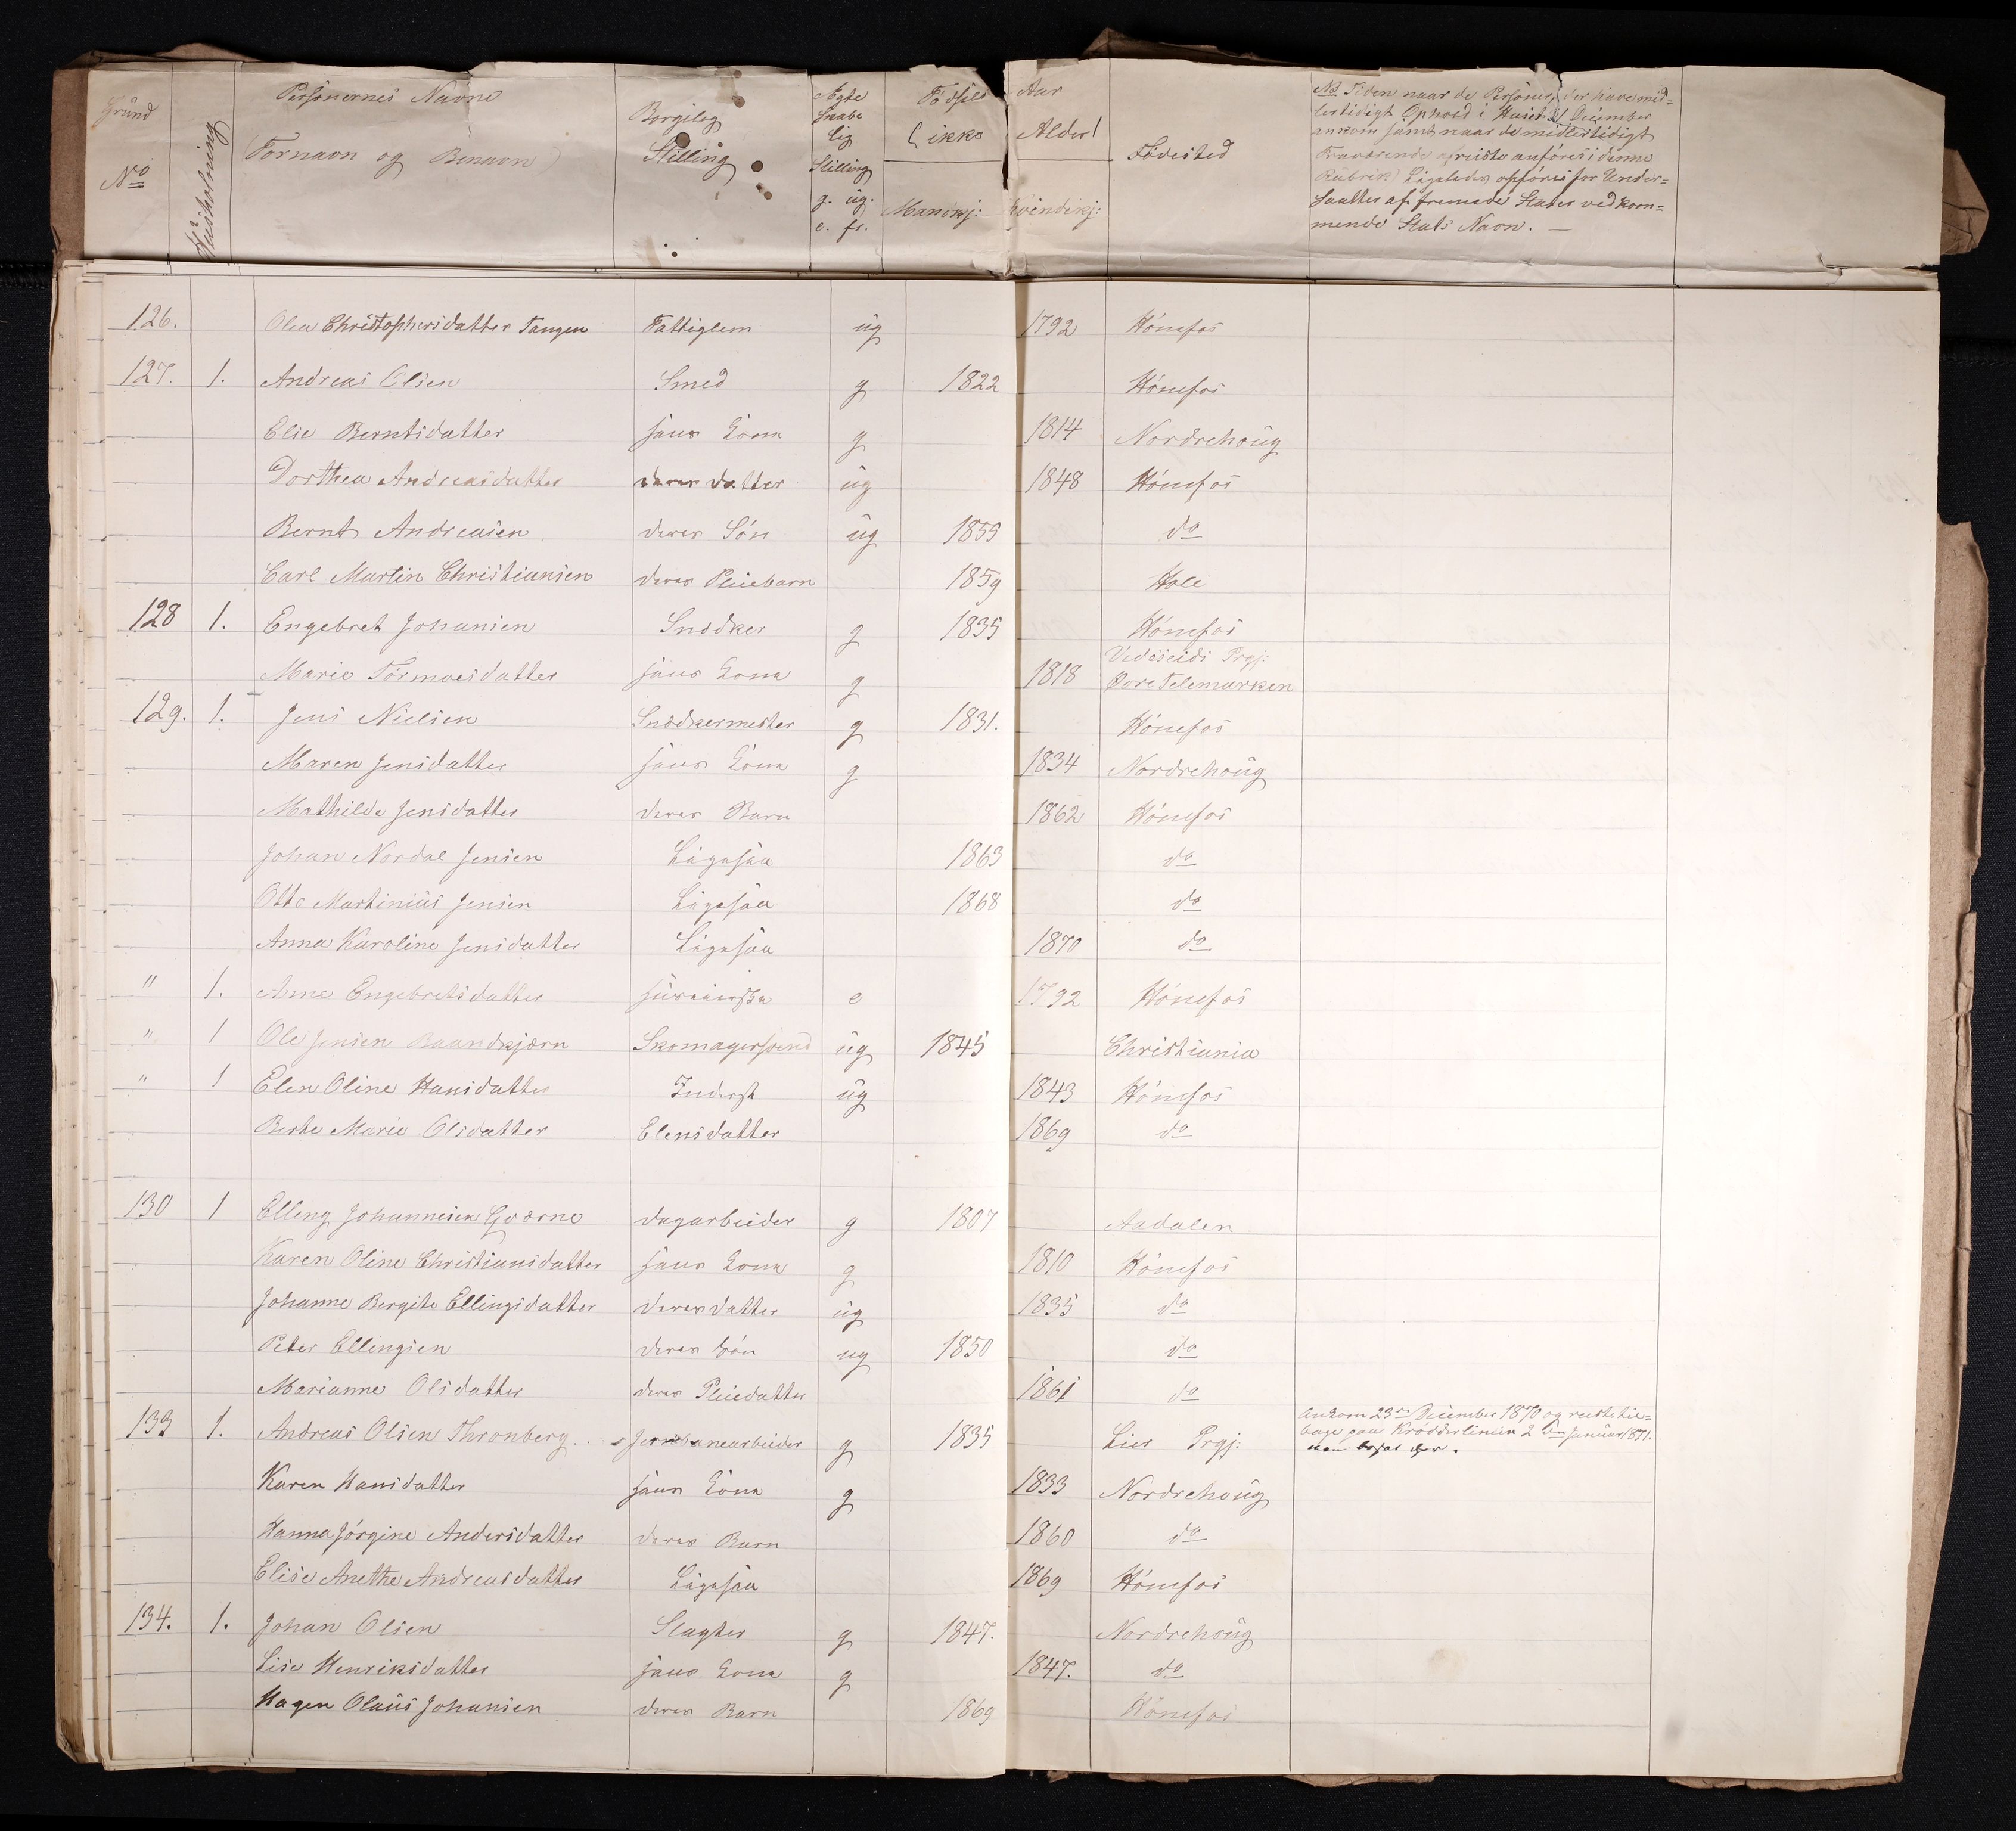 Grund No Huusholdning Personernes Navne (Fornavn og Benavn) Borgileg Stilling Ægte skabs Lig Stilling g. üg. e. fr. Fødsels Aar (ikke Alder) Mandkj: Qvindekj: Födested
NB Tiden naar de Personer, der have mid=
lertidigt Ophold i Huset 31 December
ankom samt naar de midlertidigt
Fraværende afreiste anføres i denne
Rubrik. Ligeledes opføres for Under=
saatter af fremede Stater vedkom=
mende Stats Navn. —
126. Olea Christophersdatter Tangen Fattiglem üg 1792 Hónefos
127. 1. Andreas Olsen Smed g 1822 Hónefos
Elie Berntsdatter hans Kona g 1814 Nordrehoüg
Dorthea Andreasdatter deres datter üg 1848 Hónefos
Bernt Andreasen deres Són üg 1855 do
Carl Martin Christiansen deres Pleiebarn 1859 Hole
128 1. Engebret Johansen Snedker g 1835 Hónefos
Marie Tormoesdatter hans Kona g 1818 Prgj: Óvre Telemarken
129. 1. Jens Nielsen Snedkermester g 1831. Hónefos
Maren Jensdatter hans Kona g 1834 Nordrehoüg
Mathilde Jensdatter deres Barn 1862 Hónefos
Johan Nordal Jensen Ligesaa 1863 do
Otto Martinius Jensen Ligesaa 1868 do
Anna Karoline Jensdatter Ligesaa 1870 do
" 1. Anne Engebretsdatter e 1792 Hónefos
" 1 Ole Jensen Raundkjærn Skomagersvend üg 1845 Christiania
" 1 Elen Oline Hansdatter Inderst üg 1843 Hónefos
Berte Marie Olsdatter Elensdatter 1869 do
130 1 Elling Johannesen Gværne dagarbeider g 1807 Aadalen
Karen Oline Christiansdatter hans Kona g 1810 Hónefos
Johanne Bergite Ellingsdatter deres datter üg 1835 do
Peter Ellingsen deres Són ug 1850 do
Marianne Olsdatter deres Pleiedatter 1861 do
133 1. Andreas Olsen Thronberg Jernbanearbeider g 1835 Lier Prgj: Ankom 23de December 1870 og reiste til=
bage paa Kródderlinien 2den Januar 1871.
Karen Hansdatter hans Kona g 1833 Nordrehoüg
Hanna Jórgine Andersdatter deres Barn 1860 do
Elise Anethe Andreasdatter Ligesaa 1869 Hónefos
134. 1. Johan Olsen Slagter g 1847. Nordrehoüg
Lise Henriksdatter hans Kona g 1847. do
Hagen Olaüs Johansen deres Barn 1869 Hónefos